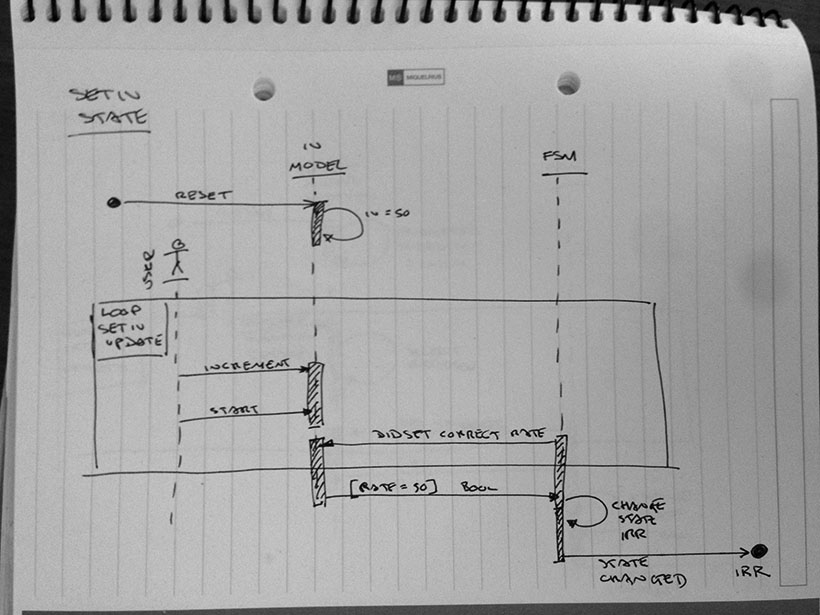 MS MIQUELRIUS
SETIV
STATE
IV
MODEL
FSM
RESET
IV = 50
USER
LOOP
SETIV
UPDATE
INCREMENT
START
DIDSET CORRECT RATE
[RATE = 50] BOOL
CHANGE
STATE
IRR
STATE
CHANGED
IRR